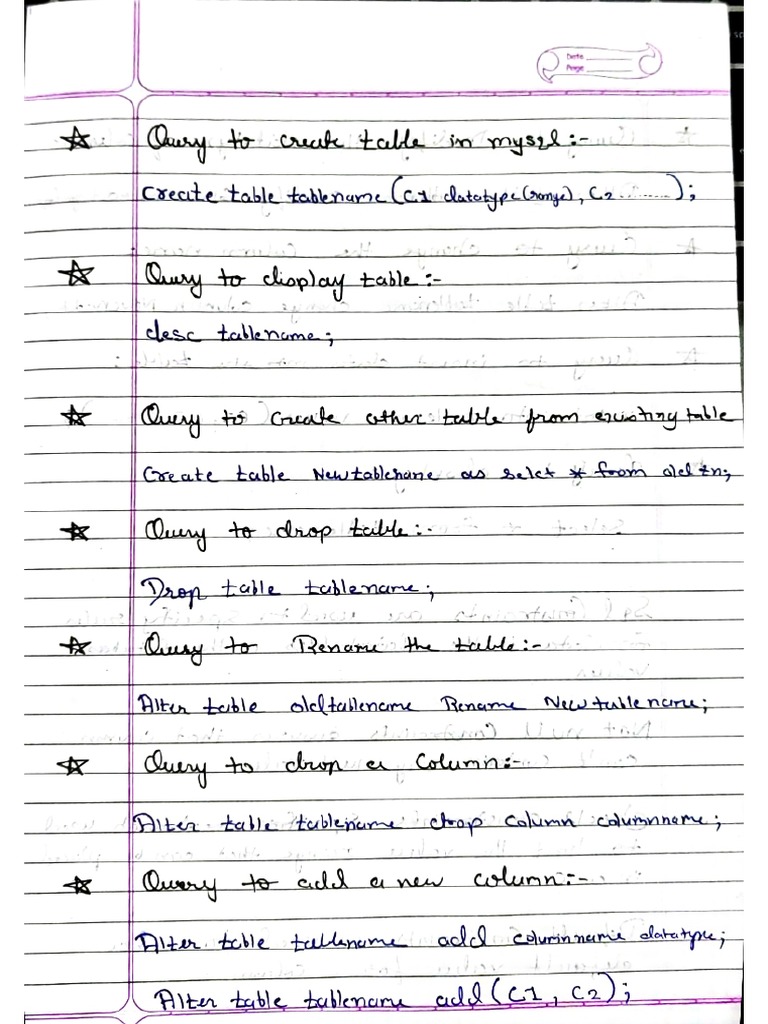 Date
Page
☆ Query to create table in mysql:-
Create table tablename(C1 datatype(range), C2 ........);
☆ Query to display table:-
desc tablename;
☆ Query to create other table from existing table
Create table Newtablename as selct * from old tn;
☆ Query to drop table:-
Drop table tablename;
☆ Query to Rename the table:-
Alter table oldtablename Rename New tablename;
☆ Query to drop a column:-
Alter table tablename drop column columnname;
☆ Query to add a new column:-
Alter table tablename add columnname datatype;
Alter table tablename add(C1, C2);